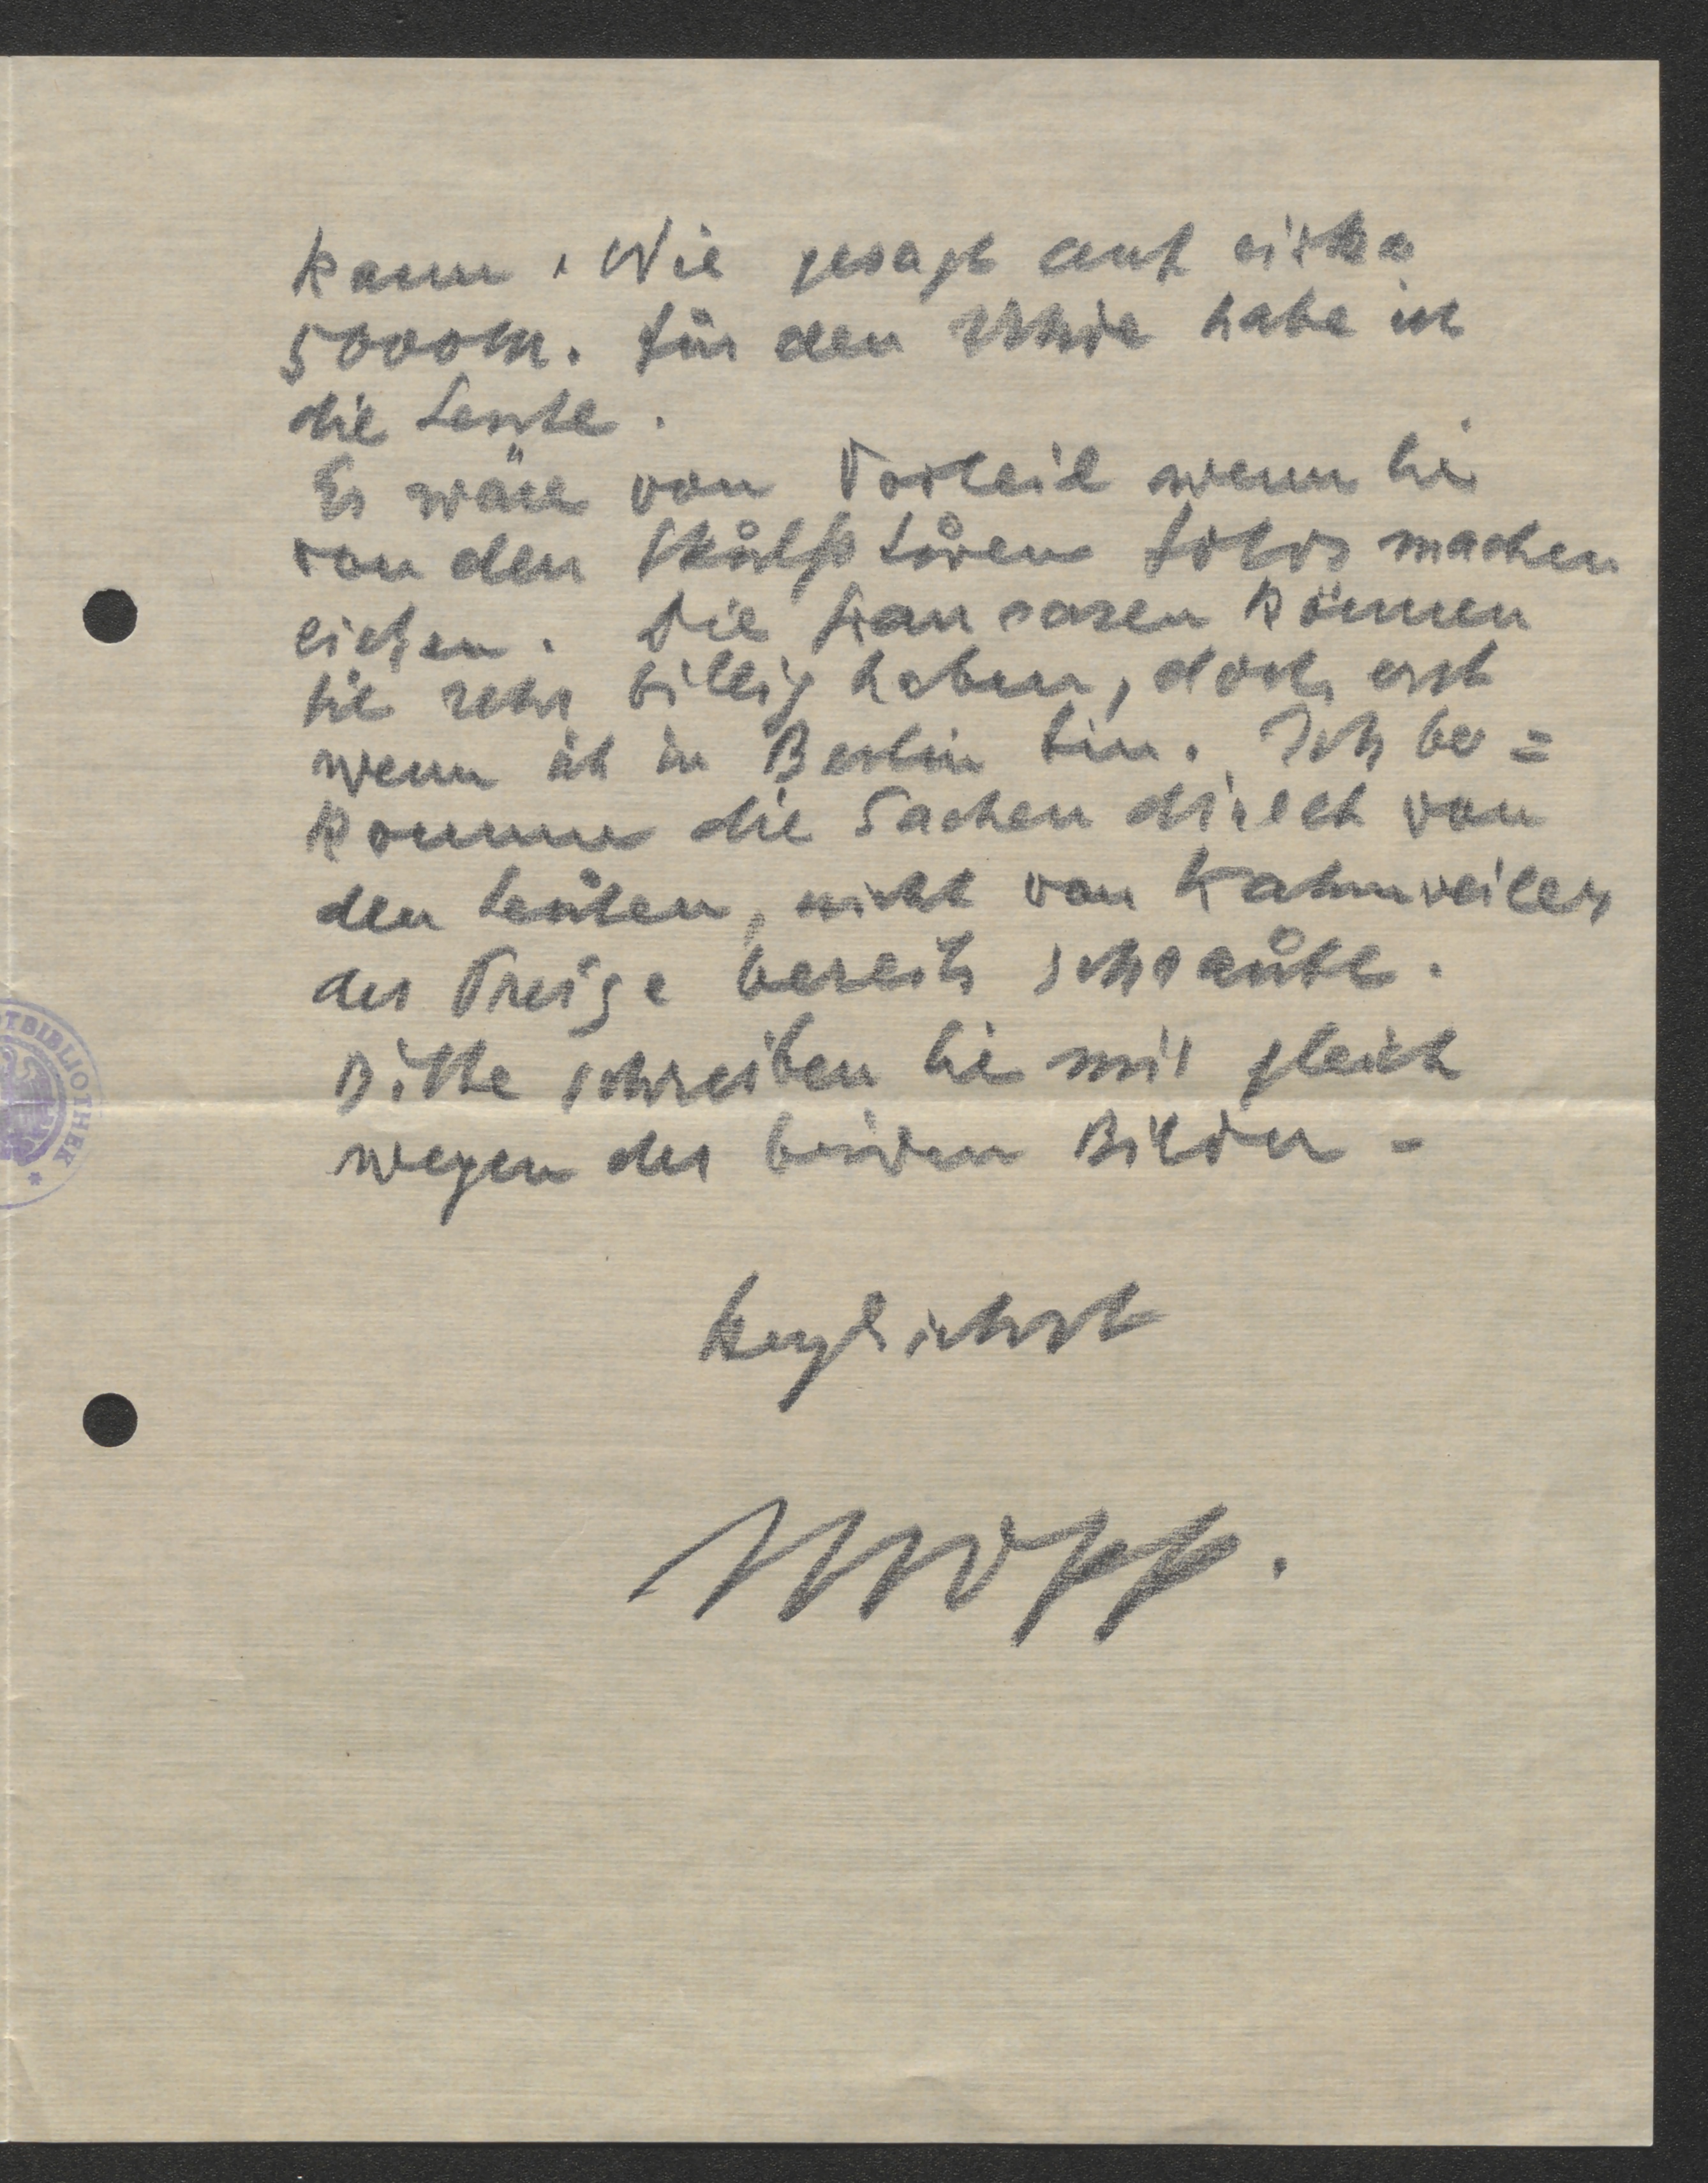 kann. Wie gesagt auf cirka
5000M. Für den Uhde habe ich
die Leute.
Es wäre von Vorteil wenn Sie
von den Skůlptůren Fotos machen
ließen. Die Franzosen können
Sie sehr billig haben, doch erst
wenn ich in Berlin bin. Ich be=
komme die Sachen direct von
den Leůten, nicht von Kahnweiler
der Preise bereits schraůbt.
Bitte schreiben Sie mir gleich
wegen der beiden Bilder -
herzlichst
Mopp.
TBIBLIOTHEK *